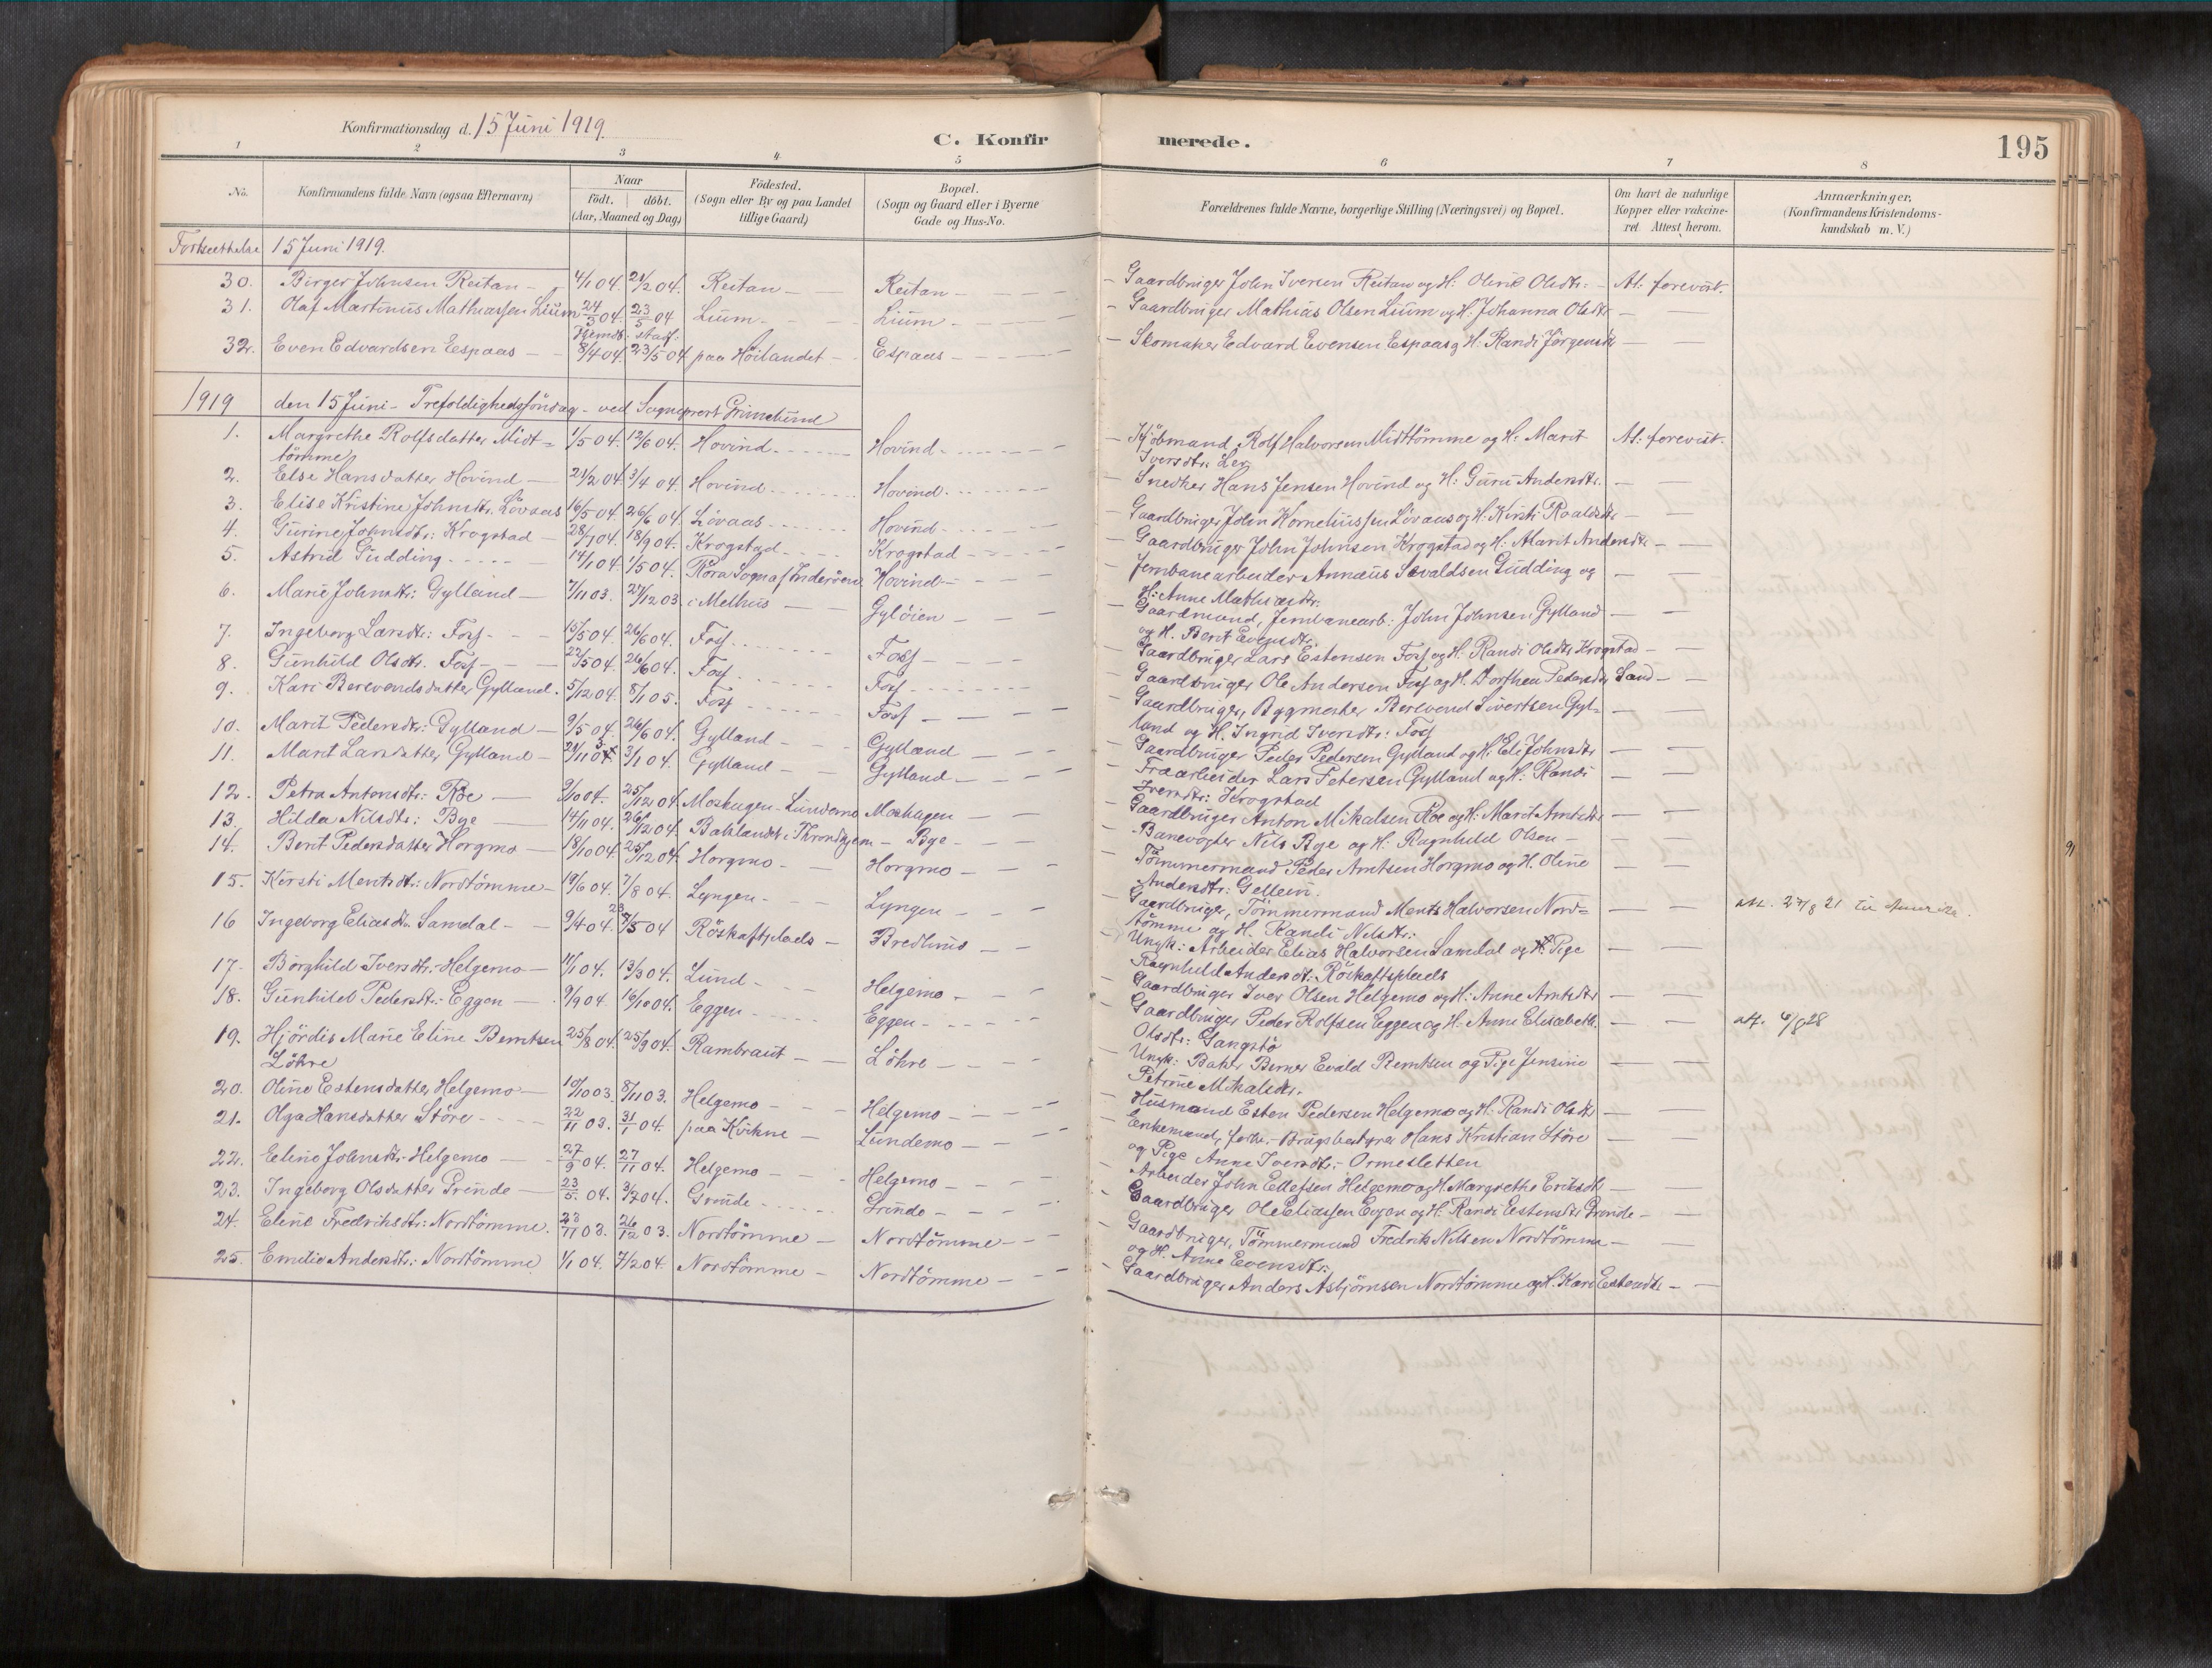 Konfirmationsdag d. 15 Juni 1919.
C. Konfirmerede.
195
1 2 3 4 5 6 7 8
No. Konfirmandens fulde Navn (ogsaa Efternavn) Naar födt. döbt. (Aar, Maaned og Dag) Födested. (Sogn eller By og paa Landet tillige Gaard) Bopæl. (Sogn og Gaard eller i Byerne Gade og Hus-No. Forældrenes fulde Navne, borgerlige Stilling (Næringsvei) og Bopæl. Om havt de naturlige Kopper eller vakcineret Attest herom. Anmærkninger. (Konfirmandens Kristendomskundskab m. V.)
Fortsættelse 15 Juni 1919.
30. Birger Johnsen Reitan - 4/1 04. 21/2 04. Reitan - Reitan - Gaardbruger John Iversen Reitan og H: Olsdtr: - At: forevist.
31. Olaf Martinus Mathiassen Lium 24/3 04. 23/5 04 Lium - Lium - Gaardbruger Mathias Olsen Lium og H. Johanna Olsdtr - —
Hjemdb. stadf:
32. Even Edvardsen Espaas - 8/4 04. 23/5 04 paa Höilandet - Espaas - Skomaker Edvard Evensen Espaas og H. Randi Jörgensdtr - —
1919 den 15 Juni - Trefoldighedssöndag - ved Sogneprest Grimelund
1. Margrethe Rolfsdatter Midt= 1/5 04. 12/6 04. Hovind - Hovind - Kjöbmand Rolf Halvorsen Midttömme og H. Marit At: forevist.
tömme Iversdtr: Ler
2. Else Hansdatter Hovind - 21/2 04. 3/4 04. Hovind - Hovind - Snedker Hans Jensen Hovind og H: Guru Andersdtr. - —
3. Elise Kristine Johnsdtr. Lövaas 16/5 04. 26/6 04. Lövaas - Hovind - Gaardbruger John Korneliussen Lövaas og H. Kirsti Roaldsdtr - —
4. Gurine Johnsdtr: Krogstad - 28/7 04. 18/9 04. Krogstad - Krogstad - Gaardbruger John Johnsen Krogstad og H: Marit Andersdtr - —
5. Astrid Gudding - 14/1 04. 1/5 04. Röra Sogn af Inderöen Hovind - Jernbanearbeider Annæus Sevaldsen Gudding og - —
H: Anne Mathiasdtr.
6. Marie Johnsdtr: Gylland - 7/11 03. 27/12 03. i Melhus - Gylöien - Gaardmand, Jernbanearb: John Johnsen Gylland - —
og H. Berit Evensdtr:
7. Ingeborg Larsdtr: Foss - 15/5 04. 26/6 04. Foss - Foss - Gaardbruger Lars Estensen Foss og H. Randi Olsdtr Krogstad - —
8. Gunhild Olsdtr. Foss - 22/5 04. 26/6 04. Foss - Foss - Gaardbruger Ole Andersen Foss og H. Dorthea Pedersdtr Sand - —
9. Kari Berevendsdatter Gylland. 5/12 04. 8/1 05. Foss - Foss - Gaardbruger, Bygmester Berevend Sivertsen Gyl=
land og H. Ingrid Iversdtr: Foss
10. Marit Pedersdtr: Gylland - 9/5 04. 26/6 04. Gylland - Gylland - Gaardbruger Peder Pedersen Gylland og H. Eli Johnsdtr - —
11. Marit Larsdatter Gylland - 29/11 03 3/1 04. Gylland - Gylland - Lars Petersen Gylland og H. Randi - —
Iversdtr: Krogstad
12. Petra Antonsdtr: Röe - 9/10 04. 25/12 04. Moshagen - Lundemo Moshagen - Gaardbruger Anton Mikalsen Röe og H: Marit Arntsdtr - —
13. Hilda Nilsdtr: Bye - 14/11 04. 26/12 04. Baklandet i Throndhjem - Bye - Banevogter Nils Bye og H. Ragnhild Olsen - —
14. Berit Pedersdatter Horgmo - 18/10 04. 25/12 04. Horgmo - Horgmo - Tömmermand Peder Arntsen Horgmo og H. Oline
Andersdtr: Gellein.
15. Kirsti Mentsdtr: Nordtömme - 19/6 04. 7/8 04. Lyngen - Lyngen - Gaardbruger, Tömmermand Ments Halvorsen Nord= - — att. 27/8 21 til Amerika.
tömme og H. Randi Nilsdtr:
16 Ingeborg Eliasdtr. Samdal - 9/4 04. 23/5 04 Röskaftplads - Bredlund - Ungk: Arbeider Elias Halvorsen Samdal og Pige - —
Ragnhild Andersdt: Röskaftsplads
17. Borghild Iversdtr: Helgemo - 11/1 04. 13/3 04. Lund - Helgemo - Gaardbruger Iver Olsen Helgemo og H: Anne Arntsdtr - —
18. Gunhild Pedersdtr: Eggen - 9/9 04 16/10 04. Eggen - Eggen - Gaardbruger Peder Rolfsen Eggen og H. Anne Elisabeth - — att. 4/8 28
Olsdtr: Gangstö
19. Hjördis Marie Eline Berntsen 25/8 04. 25/9 04. Rambraut - Löhre - Ungk: Baker Berner Evald Berntsen og Pige Jensine
Löhre Petrine Mikalsdtr.
20. Oline Estensdatter Helgemo - 10/10 03. 8/11 03. Helgemo - Helgemo - Husmand Esten Pedersen Helgemo og H. Randi Olsdtr - —
21. Olga Hansdatter Störe - 22/11 03. 31/1 04. paa Kvikne - Lundemo - Enkemand, forh. Brugsbestyrer Hans Kristian Störe - —
og Pige Anne Iversdtr. - Ormesletten
22. Eline Johnsdtr. Helgemo - 27/9 04. 27/11 04. Helgemo - Helgemo - Arbeider John Ellefsen Helgemo og H. Margrethe Eriksdtr - —
23. Ingeborg Olsdatter Grinde - 23/5. 04. 3/7 04. Grinde - Grinde - Gaardbruger Ole Eliassen Evjen og H. Randi Estensdtr Grinde - —
24. Eline Fredriksdtr: Nordtömme. 23/11 03. 26/12 03. Nordtömme - Nordtömme - Gaardbruger, Tömmermand Fredrik Nilsen Nordtömme - —
og H. Anne Evensdtr:
25. Emilie Andersdtr: Nordtömme 1/1 04. 7/2 04. Nordtömme - Nordtömme - Gaardbruger Anders Asbjörnsen Nordtömme og H. Kari Estensdtr - —